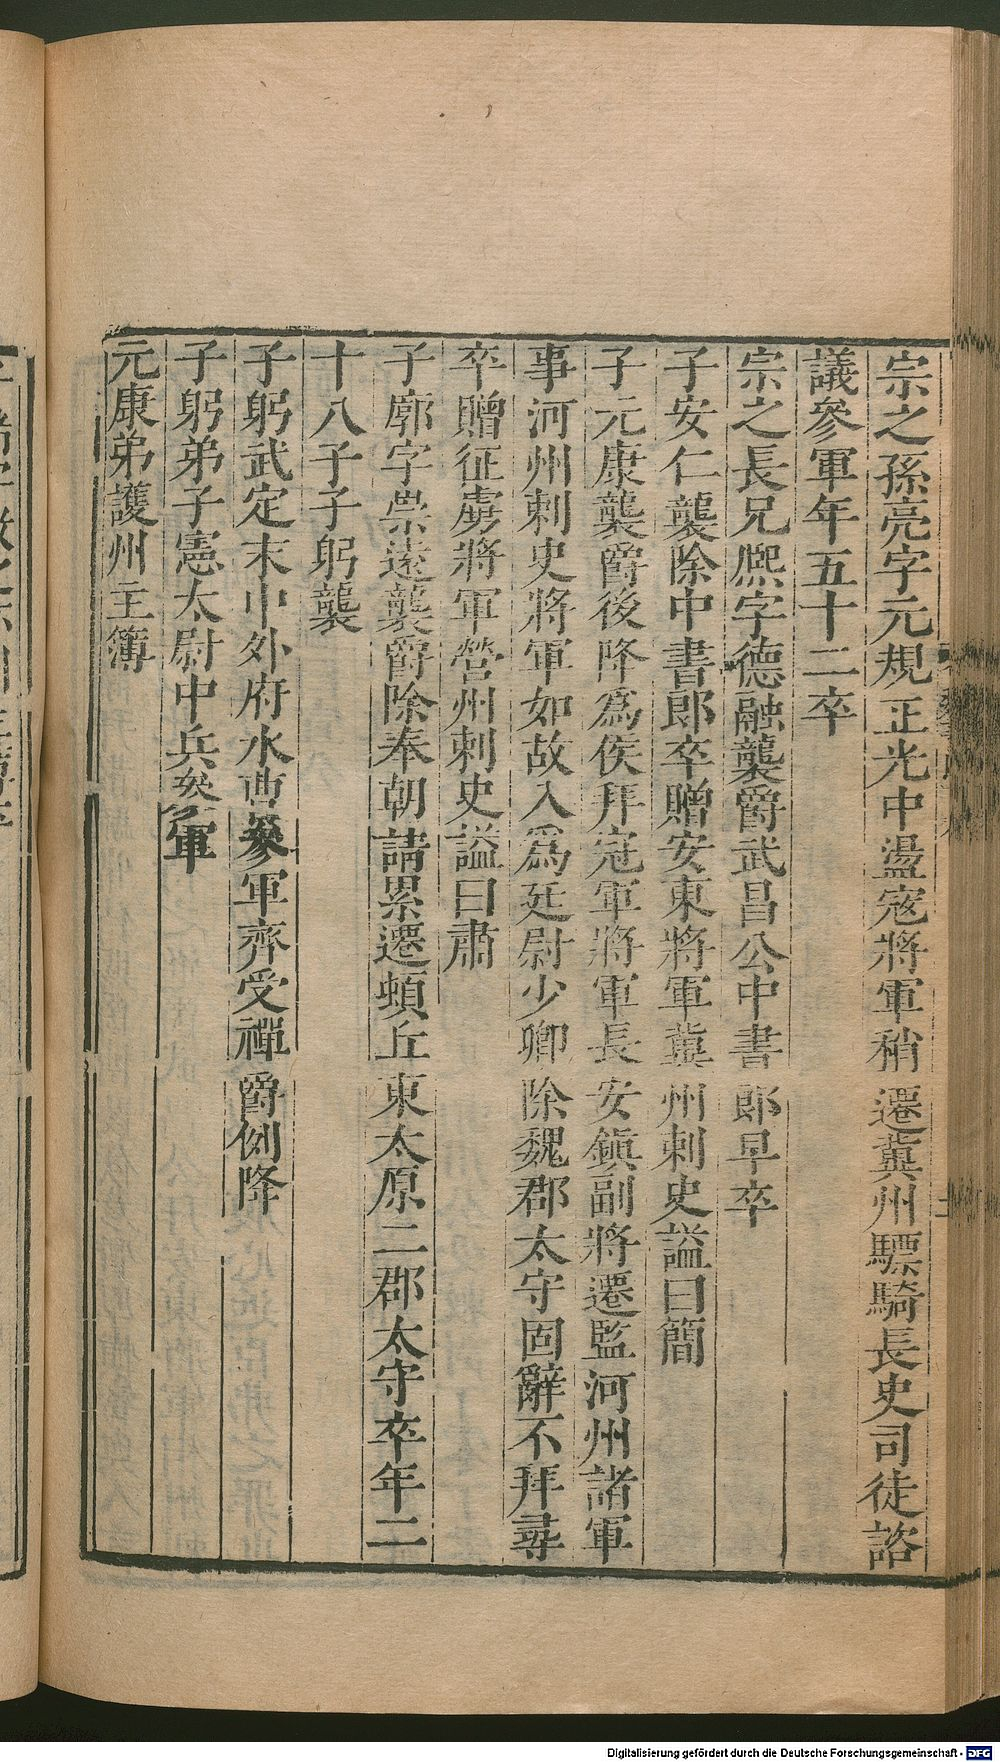 宗之孫亮字元規正光中盪寇將軍稍遷冀州驃騎長史司徒諮
議參軍年五十二卒
宗之長兄熈字德融襲爵武昌公中書郎早卒
子安仁襲除中書郎卒贈安東將軍冀州刺史謚曰簡
子元康襲爵後降爲侯拜冠軍將軍長安鎮副將遷監河州諸軍
事河州刺史將軍如故入爲廷尉少卿除魏郡太守固辭不拜尋
卒贈征虜將軍營州刺史謚曰肅
子廓字崇遠襲爵除奉朝請累遷頓丘東太原二郡太守卒年二
十八子子躬襲
子躬武定末中外府水曹參軍齊受禪爵例降
子躬弟子憲太尉中兵參軍
元康弟護州主簿
Digitalisierung gefördert durch die Deutsche Forschungsgemeinschaft - DFG